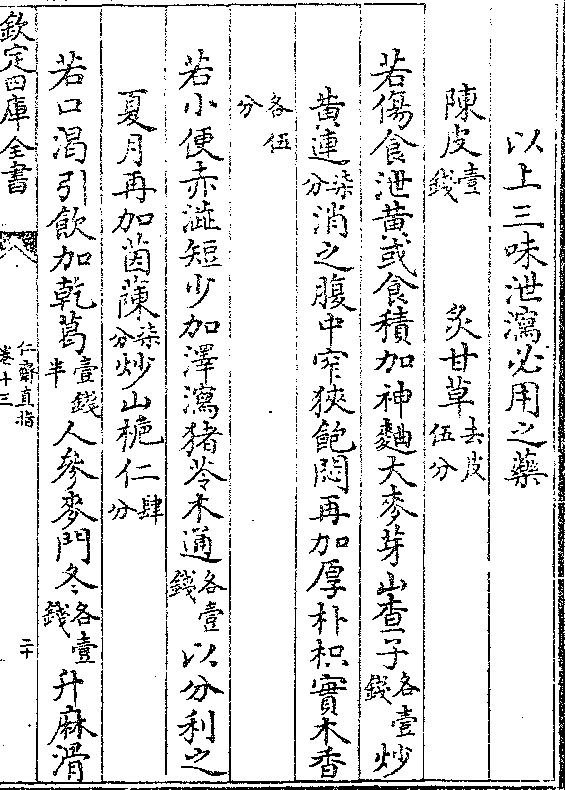 以上三味泄瀉必用之藥
陳皮壹錢 炙甘草去皮伍分
若傷食泄黄或食積加神麯大麥芽山查子各壹錢炒
黄連柒分消之腹中窄狹飽悶再加厚朴枳實木香
各伍分
若小便赤澁短少加澤瀉猪苓木通各壹錢以分利之
夏月再加茵蔯柒分炒山梔仁肆分
若口渴引飲加乾葛壹錢半人參麥門冬各壹錢升麻滑
欽定四庫全書
仁齋直指
卷十三
二十